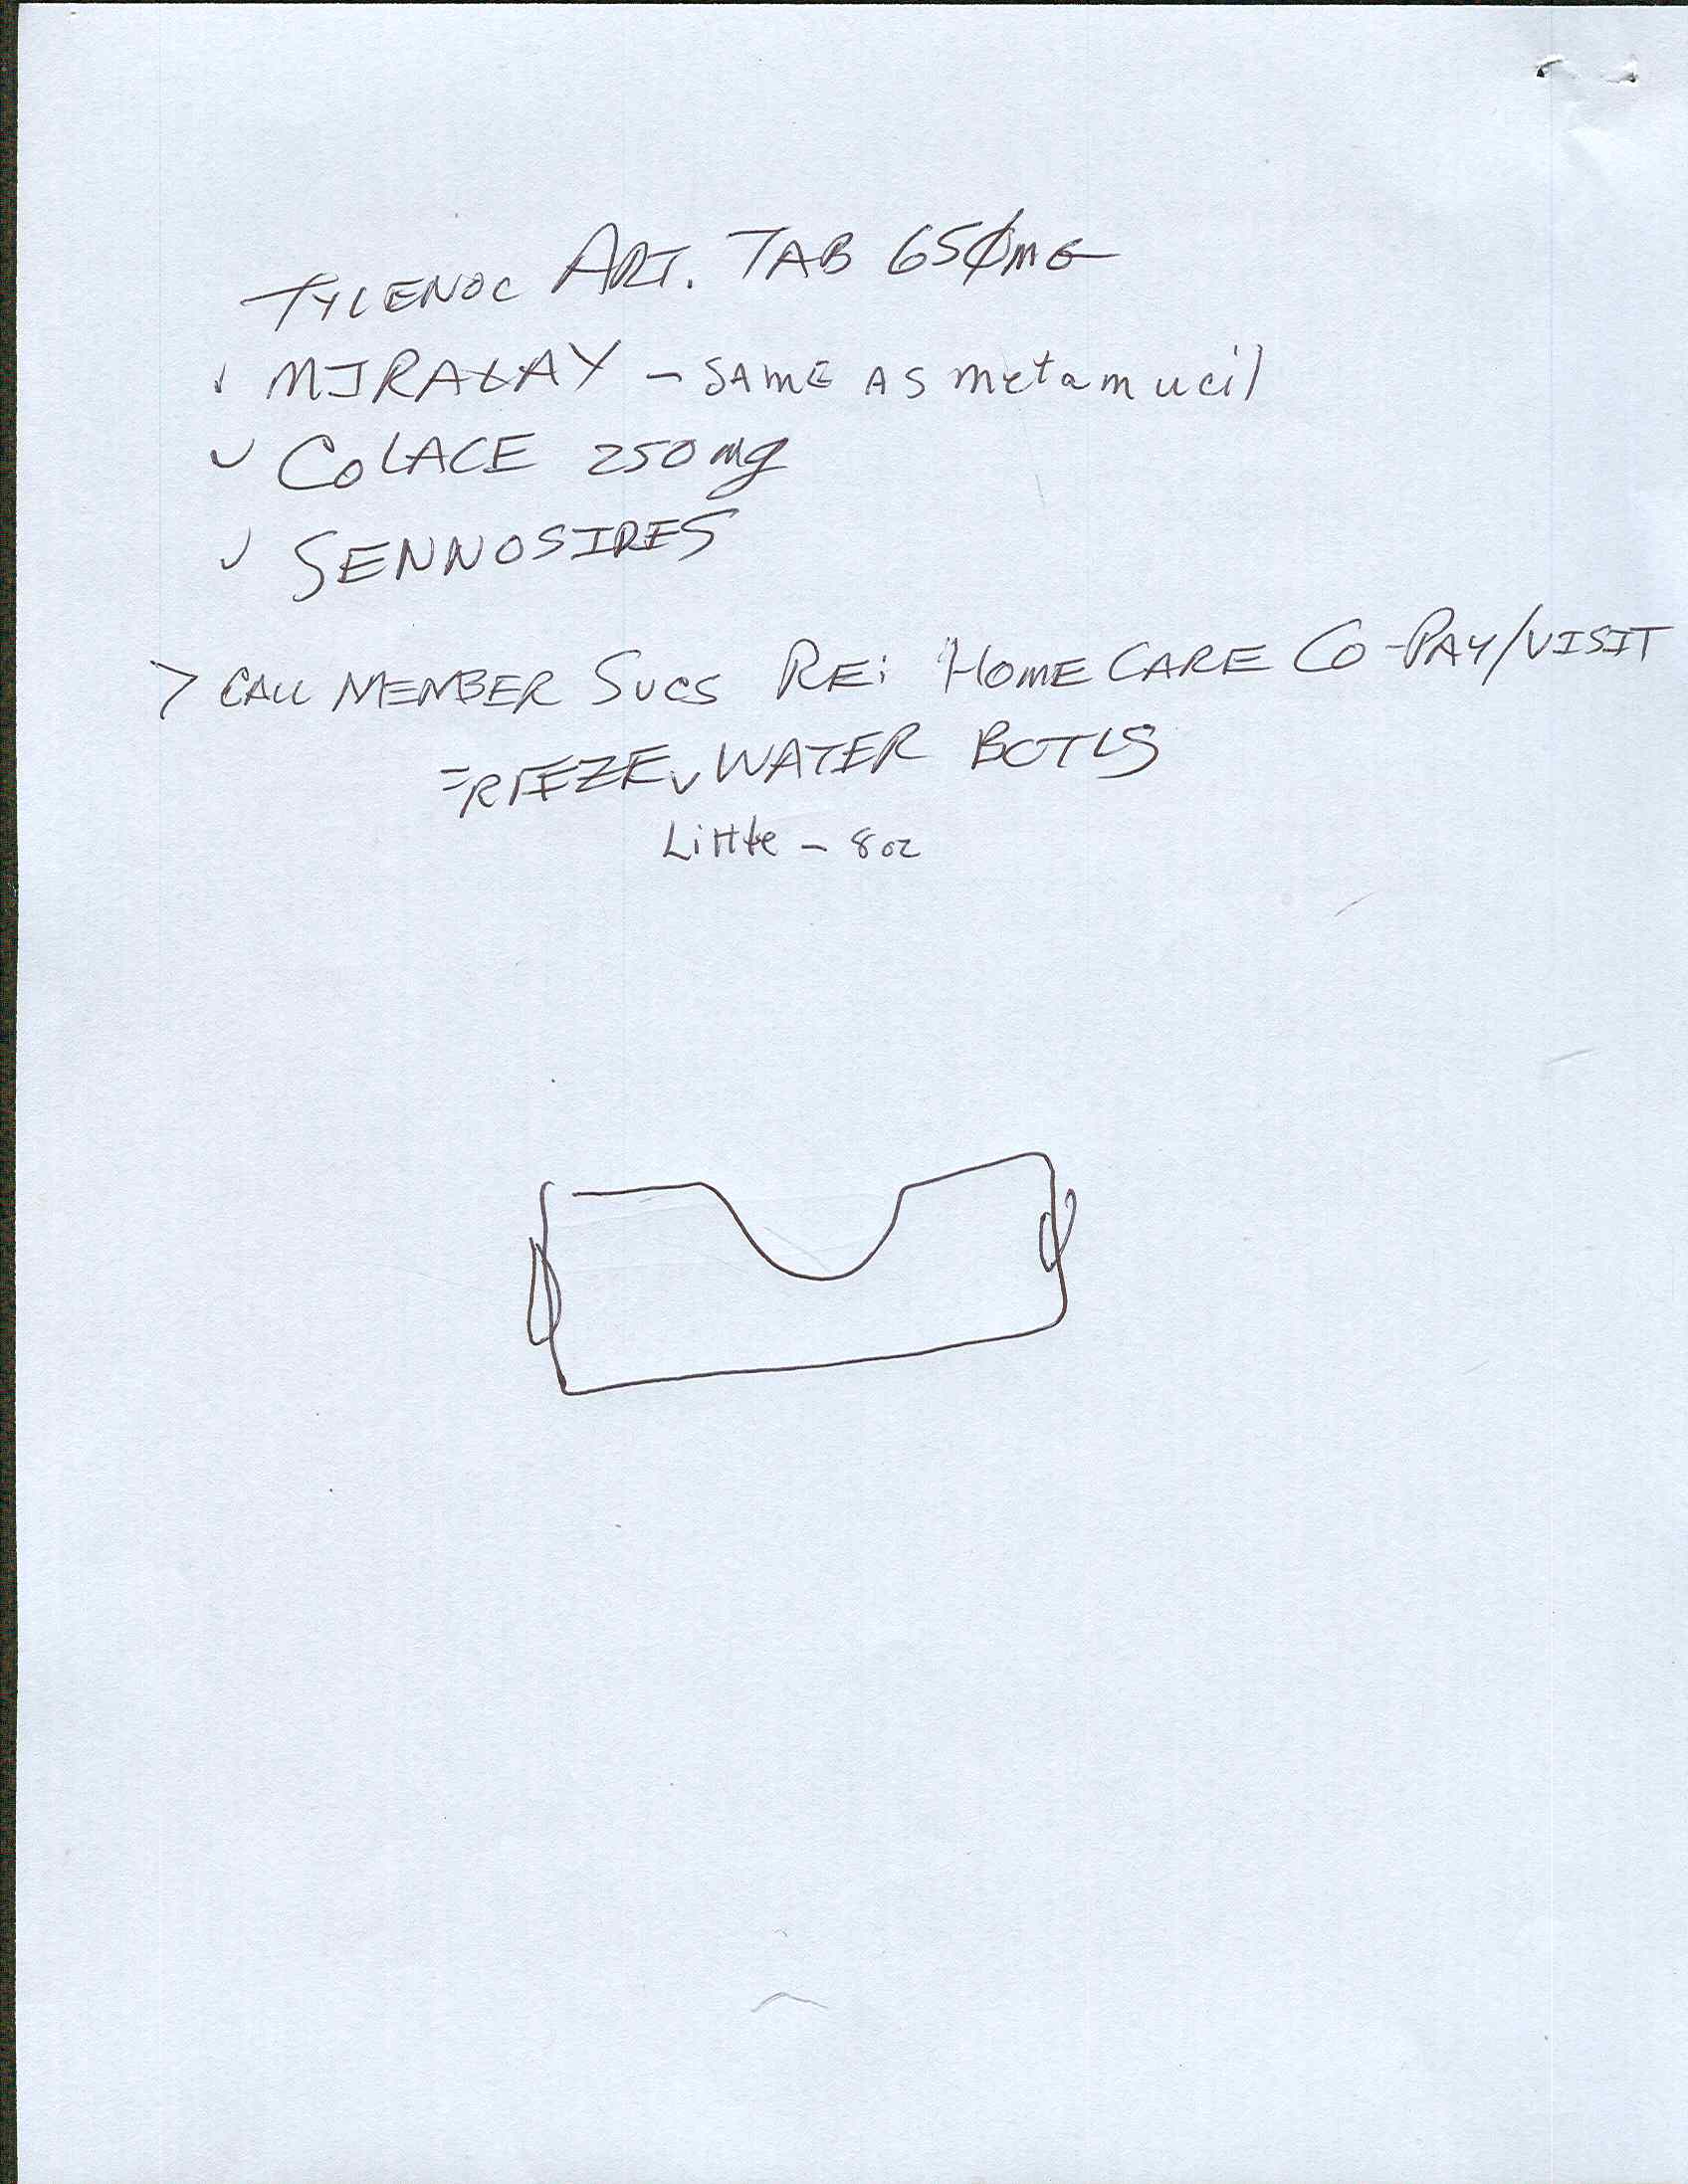 TYLENOL ART. TAB 650MG
✓ MIRALAX - SAME AS metamucil
✓ COLACE 250mg
✓ SENNOSIDES
> CALL MEMBER SVCS RE: HOME CARE CO-PAY/VISIT
FREEZE ✓ WATER BOTLS
Little - 8oz